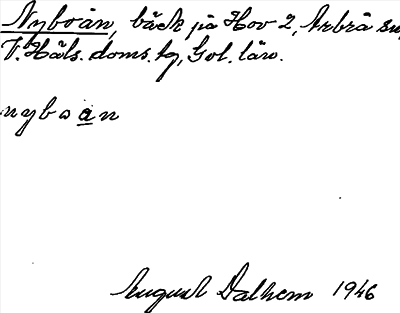 Nyboån, bäck på Hov 2, Arbrå sn,
V. Häls. doms. hg, Gvl. län.
nyboan
August Dalhem 1946